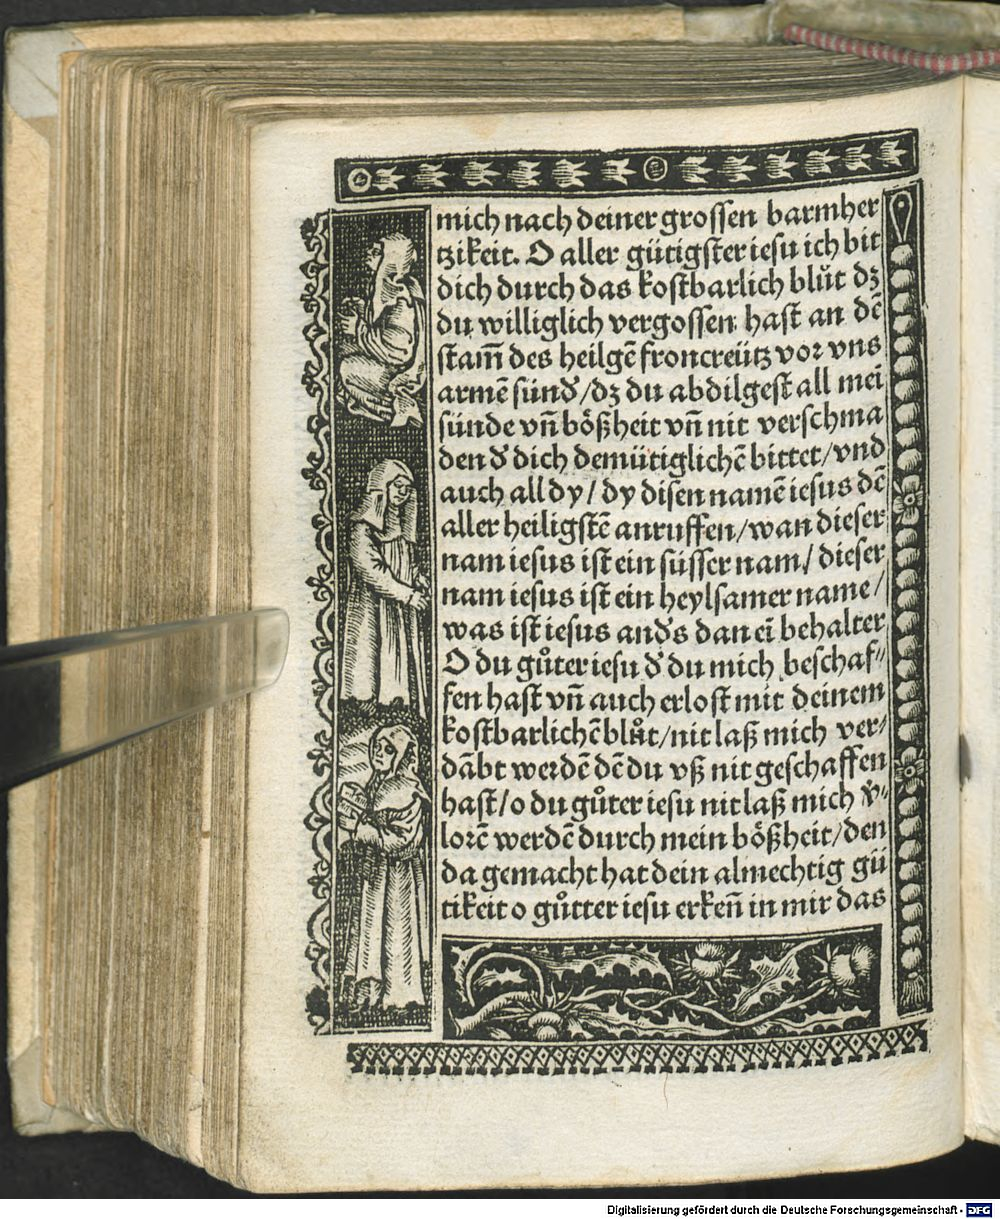 mich nach deiner grossen barmher
tzikeit. O aller gütigster iesu ich bit
dich durch das kostbarlich blůt dz
du williglich vergossen hast an dē
stam̄ des heilgē froncreütz vor vns
armē sünd᷑/dz du abdilgest all meī
sünde vn̄ bößheit vn̄ nit verschma
den d᷑ dich demütiglichē bittet/vnd
auch all dy/ dy disen namē iesus dē
aller heiligstē anruffen/wan dieser
nam iesus ist ein süsser nam/ dieser
nam iesus ist ein heylsamer name/
was ist iesus and᷑s dan eī behalter
O du gůter iesu d᷑ du mich beschaf⸗
fen hast vn̄ auch erlost mit deinem
kostbarlichē blůt/nit laß mich ver⸗
dābt werdē dē du vß nit geschaffen
hast/o du gůter iesu nit laß mich v᷑⸗
lorē werdē durch mein bößheit/den
da gemacht hat dein almechtig gü
tikeit o gůtter iesu erken̄ in mir das
Digitalisierung gefördert durch die Deutsche Forschungsgemeinschaft - DFG